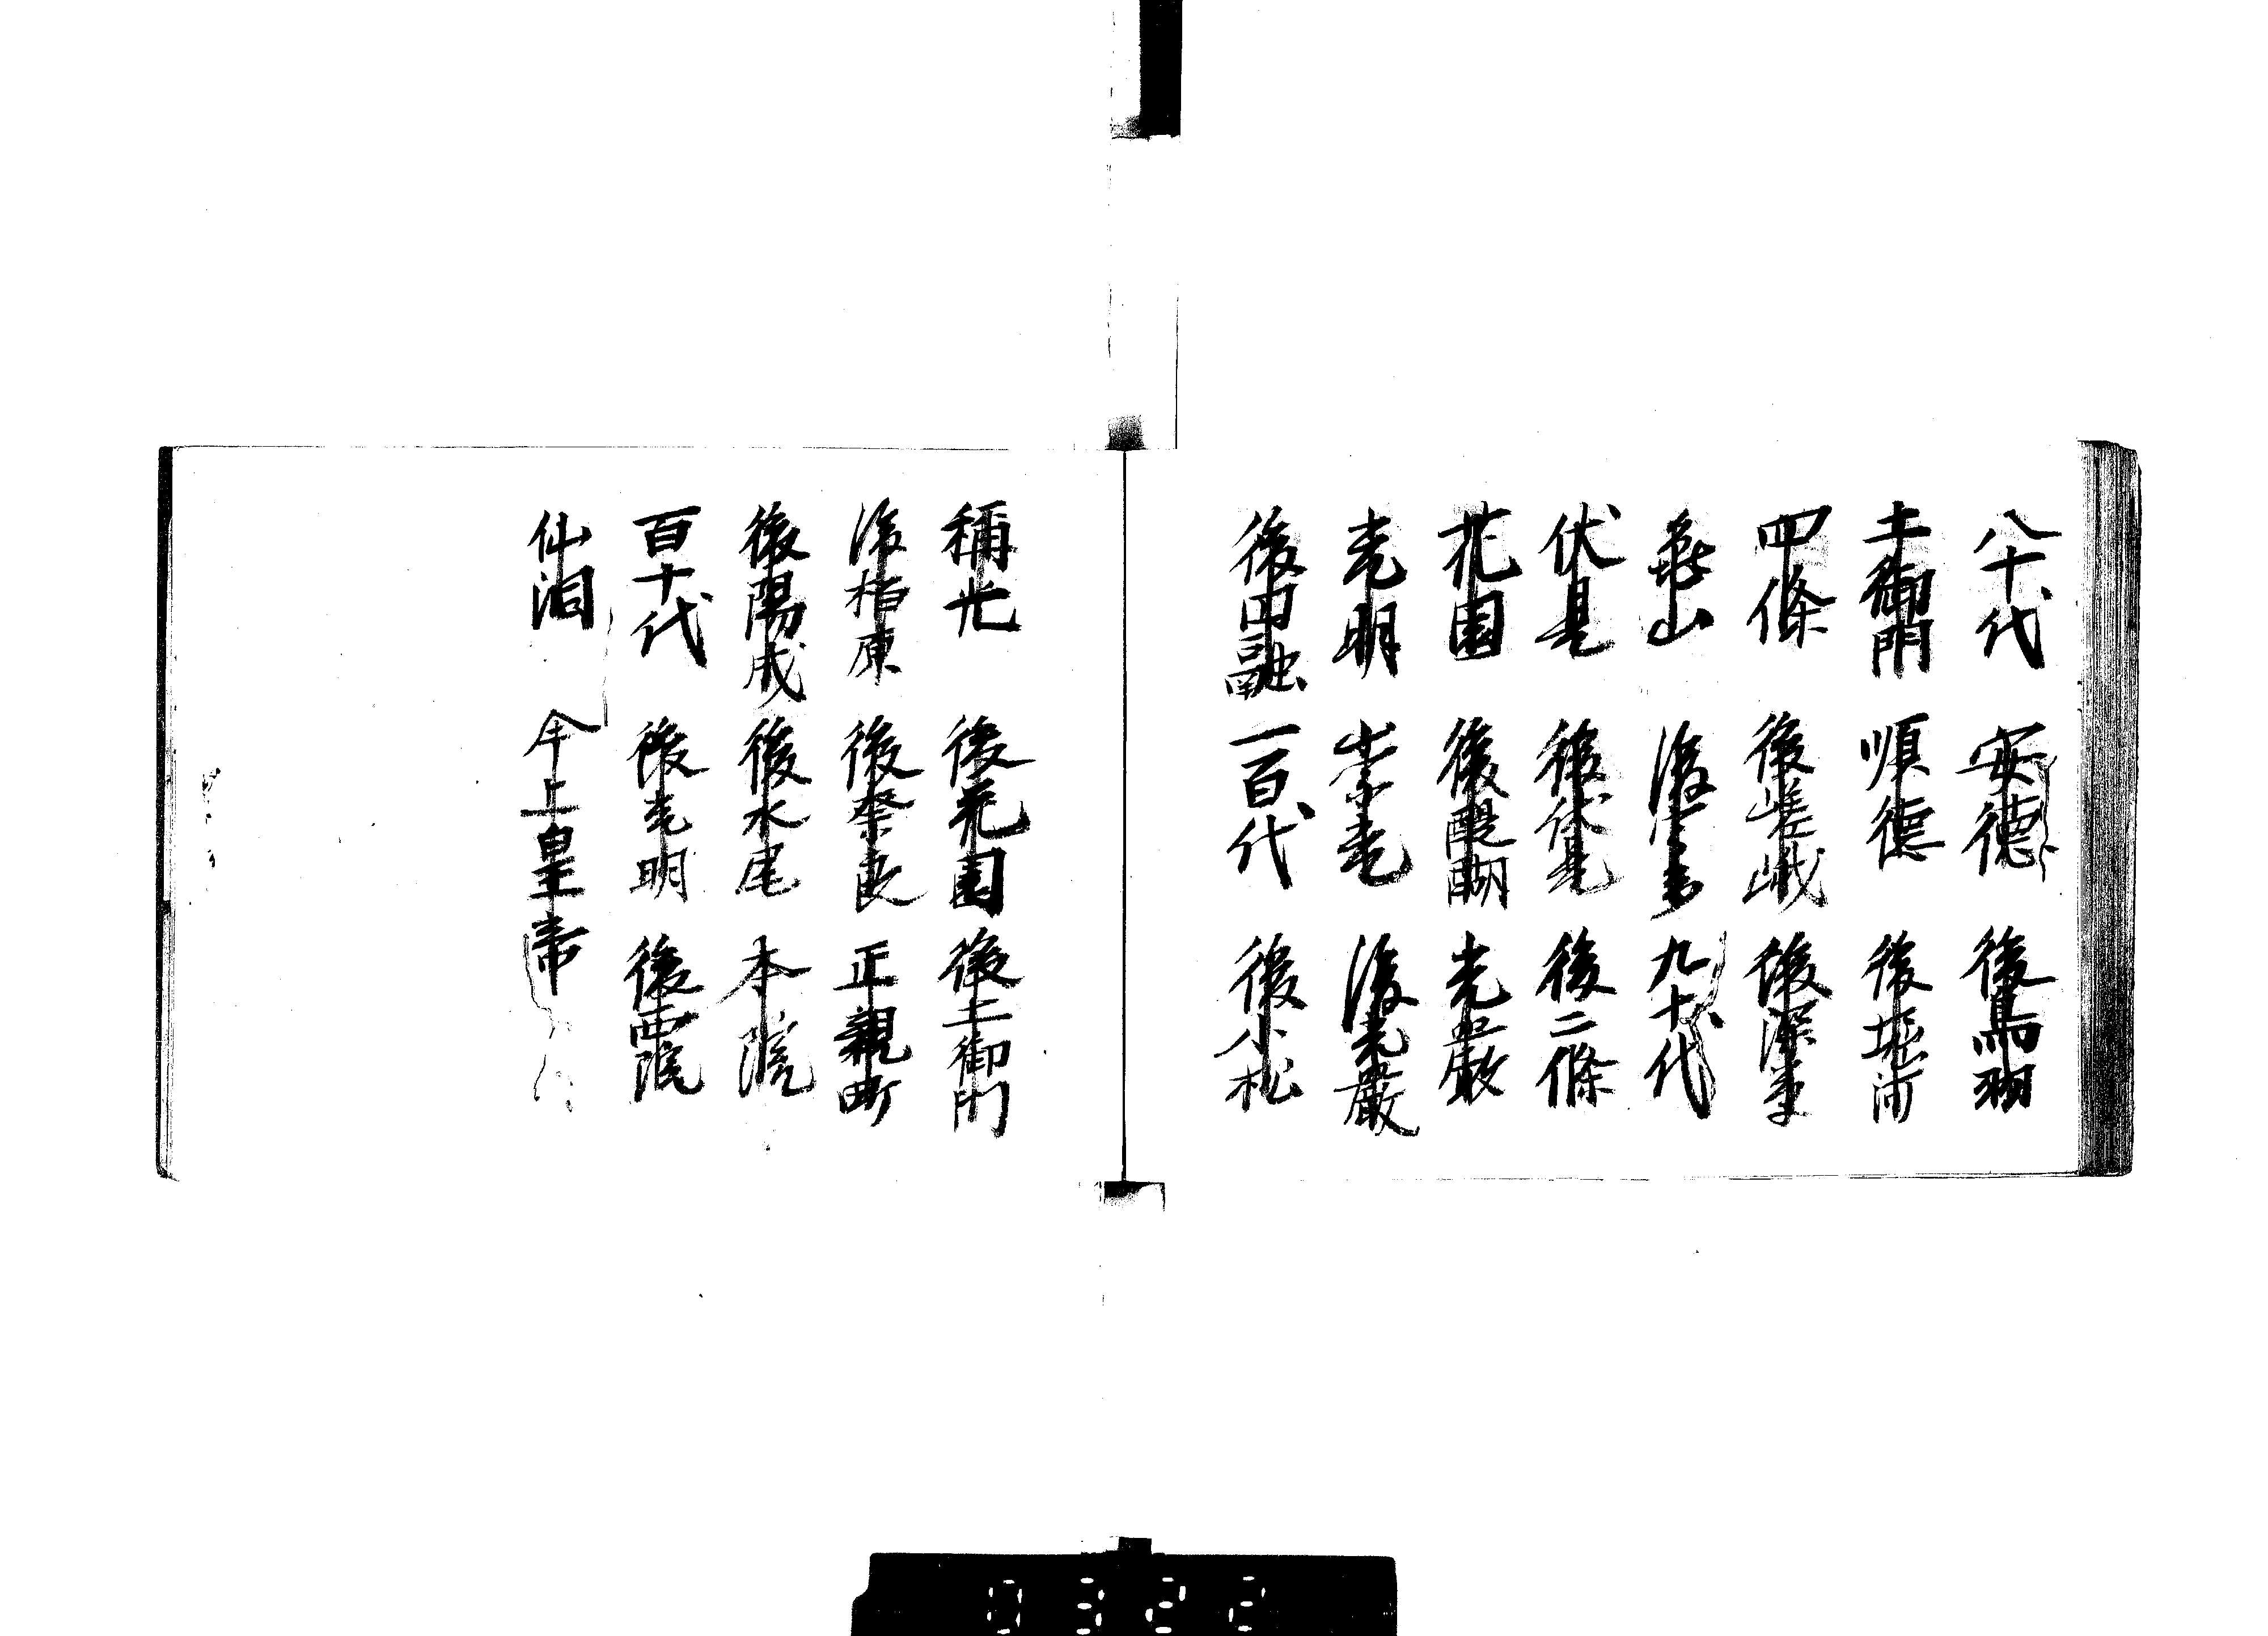 八十代 安德 後鳥羽
土御門 順德 後堀河
四條 後嵯峨 後深草
龜山 後宇多 九十代
伏見 後伏見 後二條
花園 後醍醐 光嚴
光明 崇光 後光嚴
後円融 一百代 後小松
稱光 後花園 後土御門
後柏原 後奈良 正親町
後陽成 後水尾 本院
百十代 後光明 後西院
仙洞 今上皇帝
0322